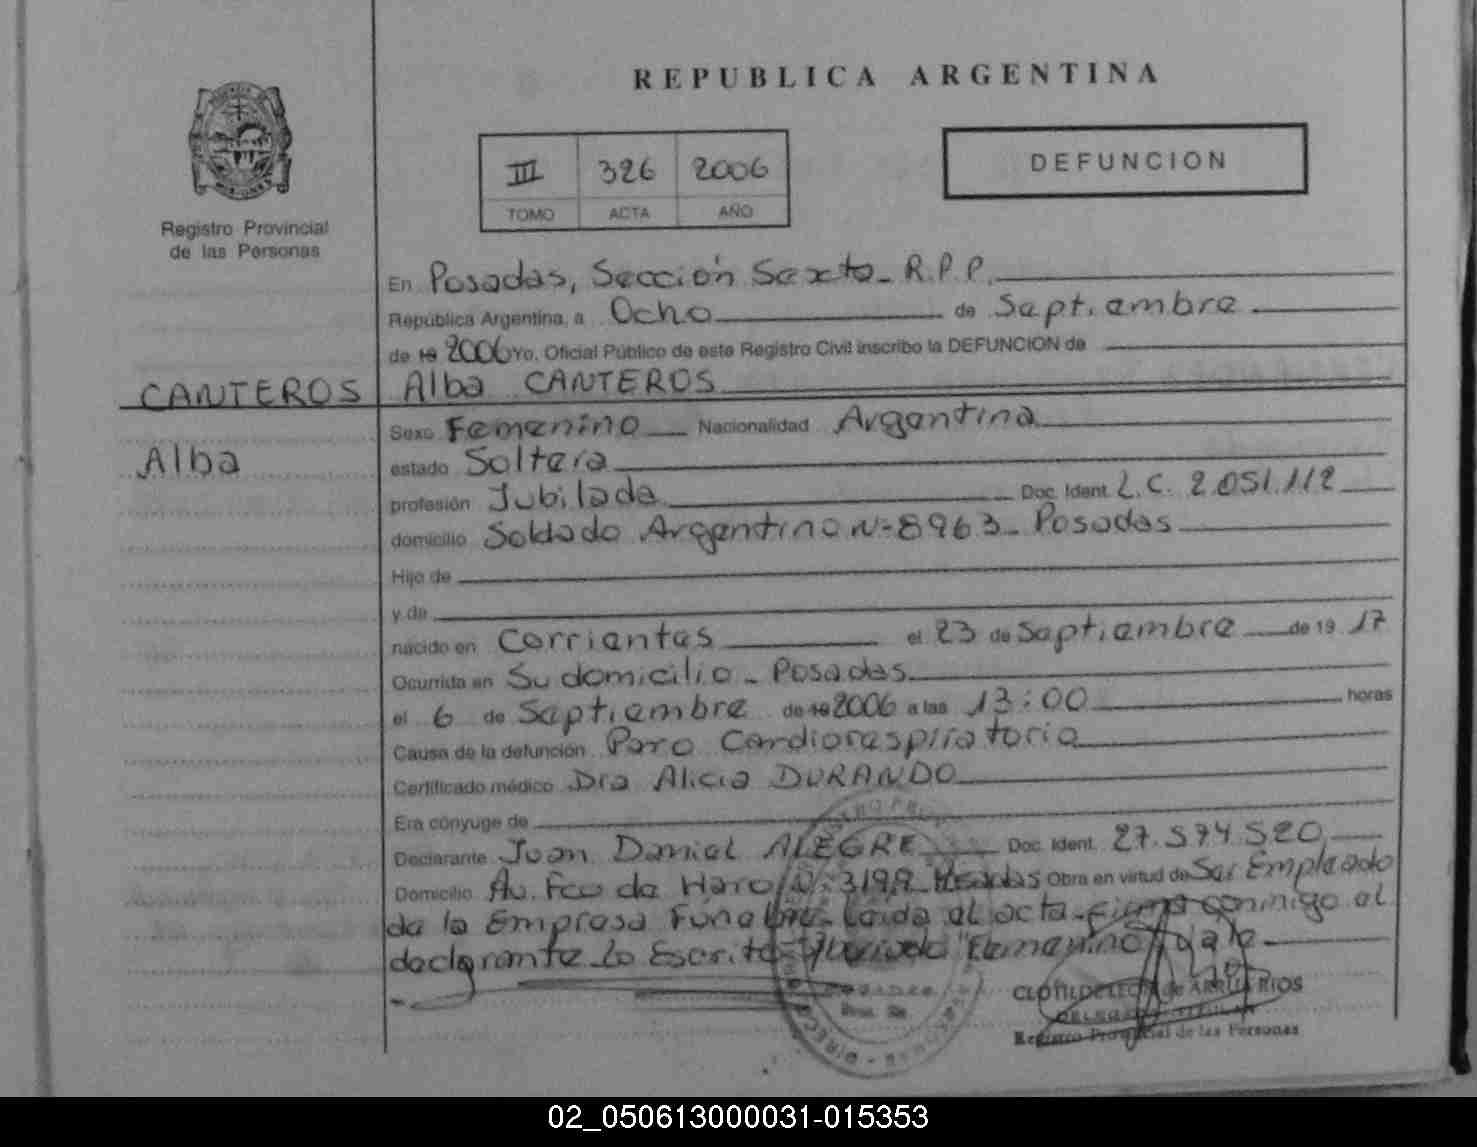 REPUBLICA ARGENTINA
III 326 2006
TOMO ACTA AÑO
DEFUNCION
Registro Provincial
de las Personas
En Posadas, Sección Sexta - R.P.P.
República Argentina, a Ocho de Septiembre
de 19 2006 Yo, Oficial Público de este Registro Civil inscribo la DEFUNCION de
CANTEROS Alba CANTEROS
Sexo Femenino Nacionalidad Argentina
Alba
estado Soltera
profesión Jubilada Doc. Ident. L.C. 2.051.112
domicilio Soldado Argentino N-8963 - Posadas
Hijo de
y de
nacido en Corrientes el 23 de Septiembre de 19 17
Ocurrida en Su domicilio - Posadas
el 6 de Septiembre de 19 2006 a las 13:00 horas
Causa de la defunción Paro Cardiorespiratorio
Certificado médico Dra Alicia DURANDO
Era cónyuge de
Declarante Juan Daniel ALEGRE Doc. Ident. 27.574.520
Domicilio Av. Fco de Haro N- 3199 Posadas Obra en virtud de Ser Empleado
de la Empresa Fúnebre - Leida el acta - firma conmigo el
declarante - Lo Escrito "Femenino" vale
CLOTILDE de RIOS
DELEGADA TITULAR
Registro Provincial de las Personas
02_050613000031-015353